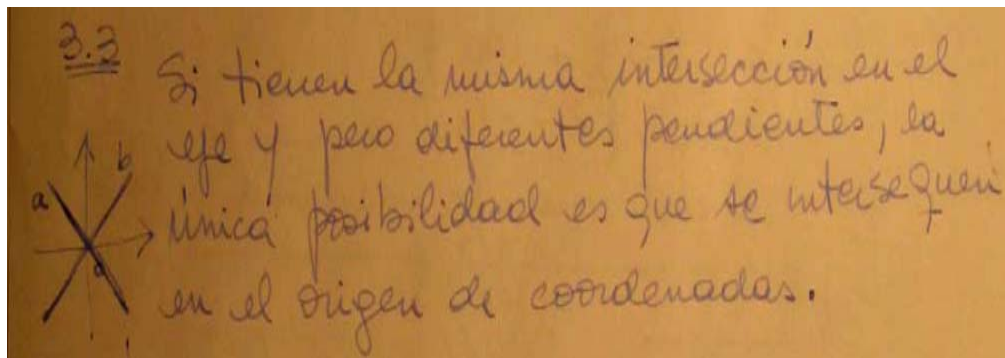 3.3
Si tienen la misma intersección en el
eje y pero diferentes pendientes, la
única posibilidad es que se intersequen
en el origen de coordenadas.
a
b
o